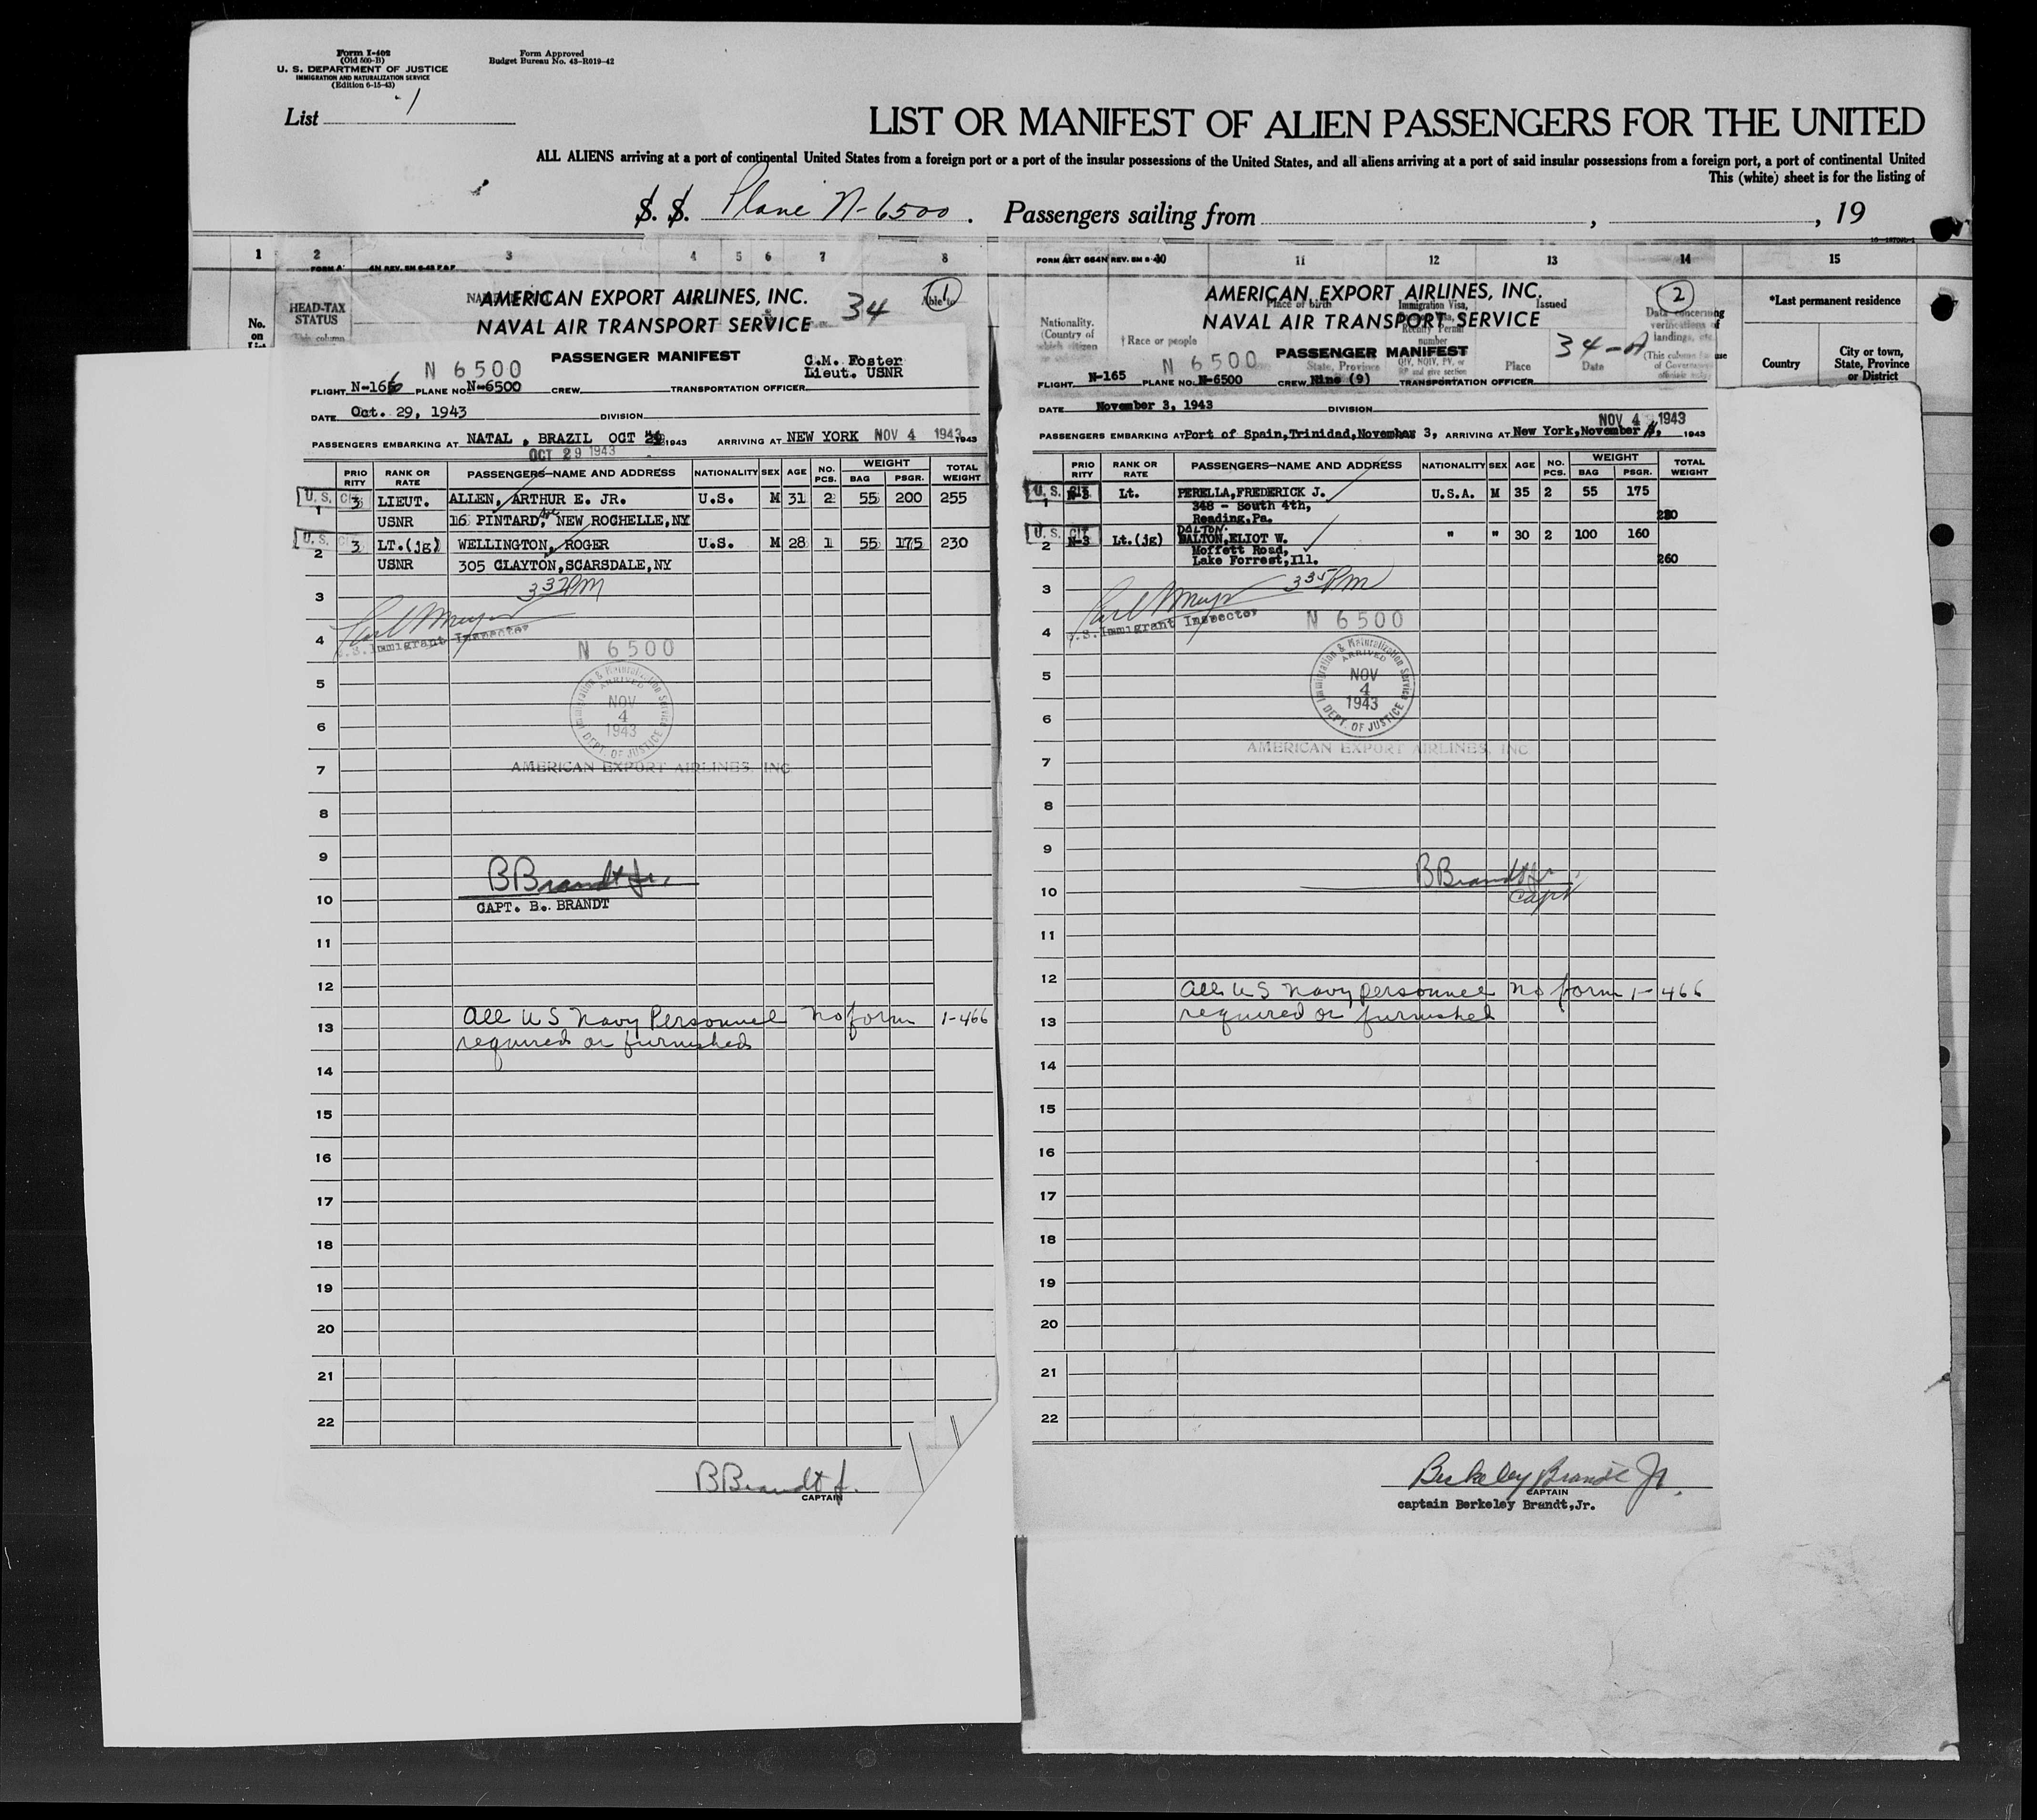 Form I-402
(Old 500-B)
U. S. DEPARTMENT OF JUSTICE
IMMIGRATION AND NATURALIZATION SERVICE
(Edition 6-15-43)
Form Approved
Budget Bureau No. 43-R019-42
List 1
LIST OR MANIFEST OF ALIEN PASSENGERS FOR THE UNITED
ALL ALIENS arriving at a port of continental United States from a foreign port or a port of the insular possessions of the United States, and all aliens arriving at a port of said insular possessions from a foreign port, a port of continental United
This (white) sheet is for the listing of
S. S. Plane N-6500. Passengers sailing from , , 19
1 2 3 4 5 6 7 8 10 11 12 13 14 15
No. on
HEAD-TAX STATUS
Nationality. (Country of which citizen
† Race or people
Place of birth
Immigration Visa,
number
Issued
Place
Date
Data concerning verifications of landings, etc.
(This column for use of Government
*Last permanent residence
Country
City or town, State, Province or District
AMERICAN EXPORT AIRLINES, INC.
NAVAL AIR TRANSPORT SERVICE
34
1
PASSENGER MANIFEST
N 6500
C.M. Foster
Lieut. USNR
FLIGHT N-166 PLANE NO. N-6500 CREW TRANSPORTATION OFFICER
DATE Oct. 29, 1943 DIVISION
PASSENGERS EMBARKING AT NATAL, BRAZIL OCT 1943 ARRIVING AT NEW YORK NOV 4 1943 1943
OCT 29 1943
PRIORITY RANK OR RATE PASSENGERS—NAME AND ADDRESS NATIONALITY SEX AGE NO. PCS. WEIGHT BAG PSGR. TOTAL WEIGHT
U. S. CIT
1 3 LIEUT. ALLEN, ARTHUR E. JR. U.S. M 31 2 55 200 255
USNR 16 PINTARD, Ave NEW ROCHELLE, NY
U. S. CIT
2 3 LT.(jg) WELLINGTON, ROGER U.S. M 28 1 55 175 230
USNR 305 CLAYTON, SCARSDALE, NY
3
Carl Meyer
U.S. Immigrant Inspector
4
N 6500
5
Immigration & Naturalization Service
ARRIVED
NOV
4
1943
DEPT. OF JUSTICE
6
7
AMERICAN EXPORT AIRLINES, INC
8
9
B Brandt Jr.
10
CAPT. B. BRANDT
11
12
13 All US Navy Personnel no form I-466
required or furnished
14
15
16
17
18
19
20
21
22
B Brandt Jr.
CAPTAIN
AMERICAN EXPORT AIRLINES, INC.
NAVAL AIR TRANSPORT SERVICE
2
34-A
N 6500
PASSENGER MANIFEST
FLIGHT N-165 PLANE NO. N-6500 CREW Nine (9) TRANSPORTATION OFFICER
DATE November 3, 1943 DIVISION
NOV 4 1943
PASSENGERS EMBARKING AT Port of Spain, Trinidad, November 3, ARRIVING AT New York, November 4, 1943
PRIORITY RANK OR RATE PASSENGERS—NAME AND ADDRESS NATIONALITY SEX AGE NO. PCS. WEIGHT BAG PSGR. TOTAL WEIGHT
U. S. CIT
1 N-3 Lt. PERELLA, FREDERICK J. U.S.A. M 35 2 55 175
348 - South 4th,
Reading, Pa. 230
U. S. CIT
DALTON
2 N-3 Lt.(jg) DALTON, ELIOT W. " " 30 2 100 160
Moffett Road,
Lake Forrest, Ill. 260
3
335 PM
Carl Meyer
U.S. Immigrant Inspector
4
N 6500
5
Immigration & Naturalization Service
ARRIVED
NOV
4
1943
DEPT. OF JUSTICE
6
AMERICAN EXPORT AIRLINES, INC
7
8
9
B Brandt Jr.
Capt
10
11
12
All US Navy personnel no form I-466
required or furnished
13
14
15
16
17
18
19
20
21
22
Berkeley Brandt Jr.
CAPTAIN
captain Berkeley Brandt, Jr.